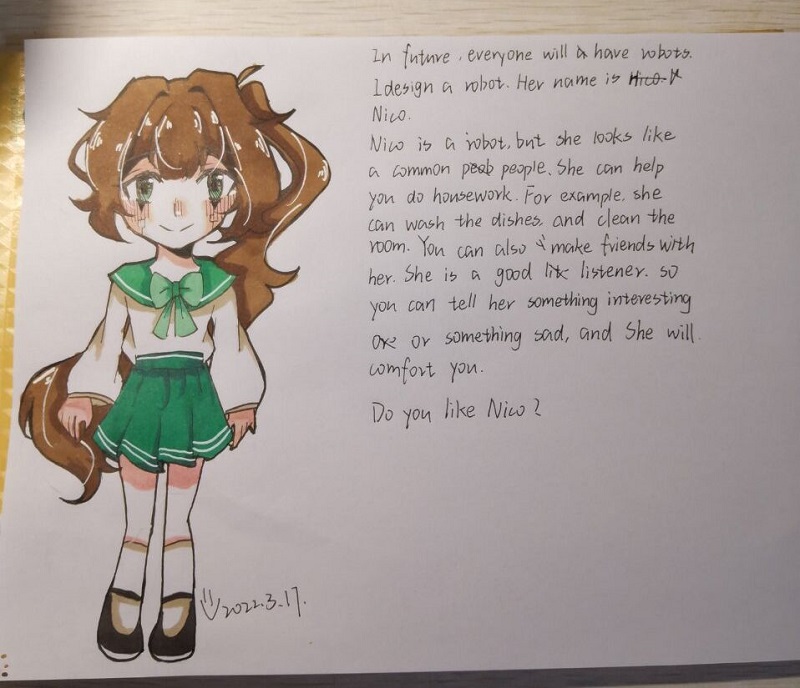 In future, everyone will have robots.
I design a robot. Her name is
Nico.
Nico is a robot, but she looks like
a common people. She can help
you do housework. For example, she
can wash the dishes and clean the
room. You can also make friends with
her. She is a good listener. so
you can tell her something interesting
or something sad, and She will
comfort you.
Do you like Nico?
2022.3.17.